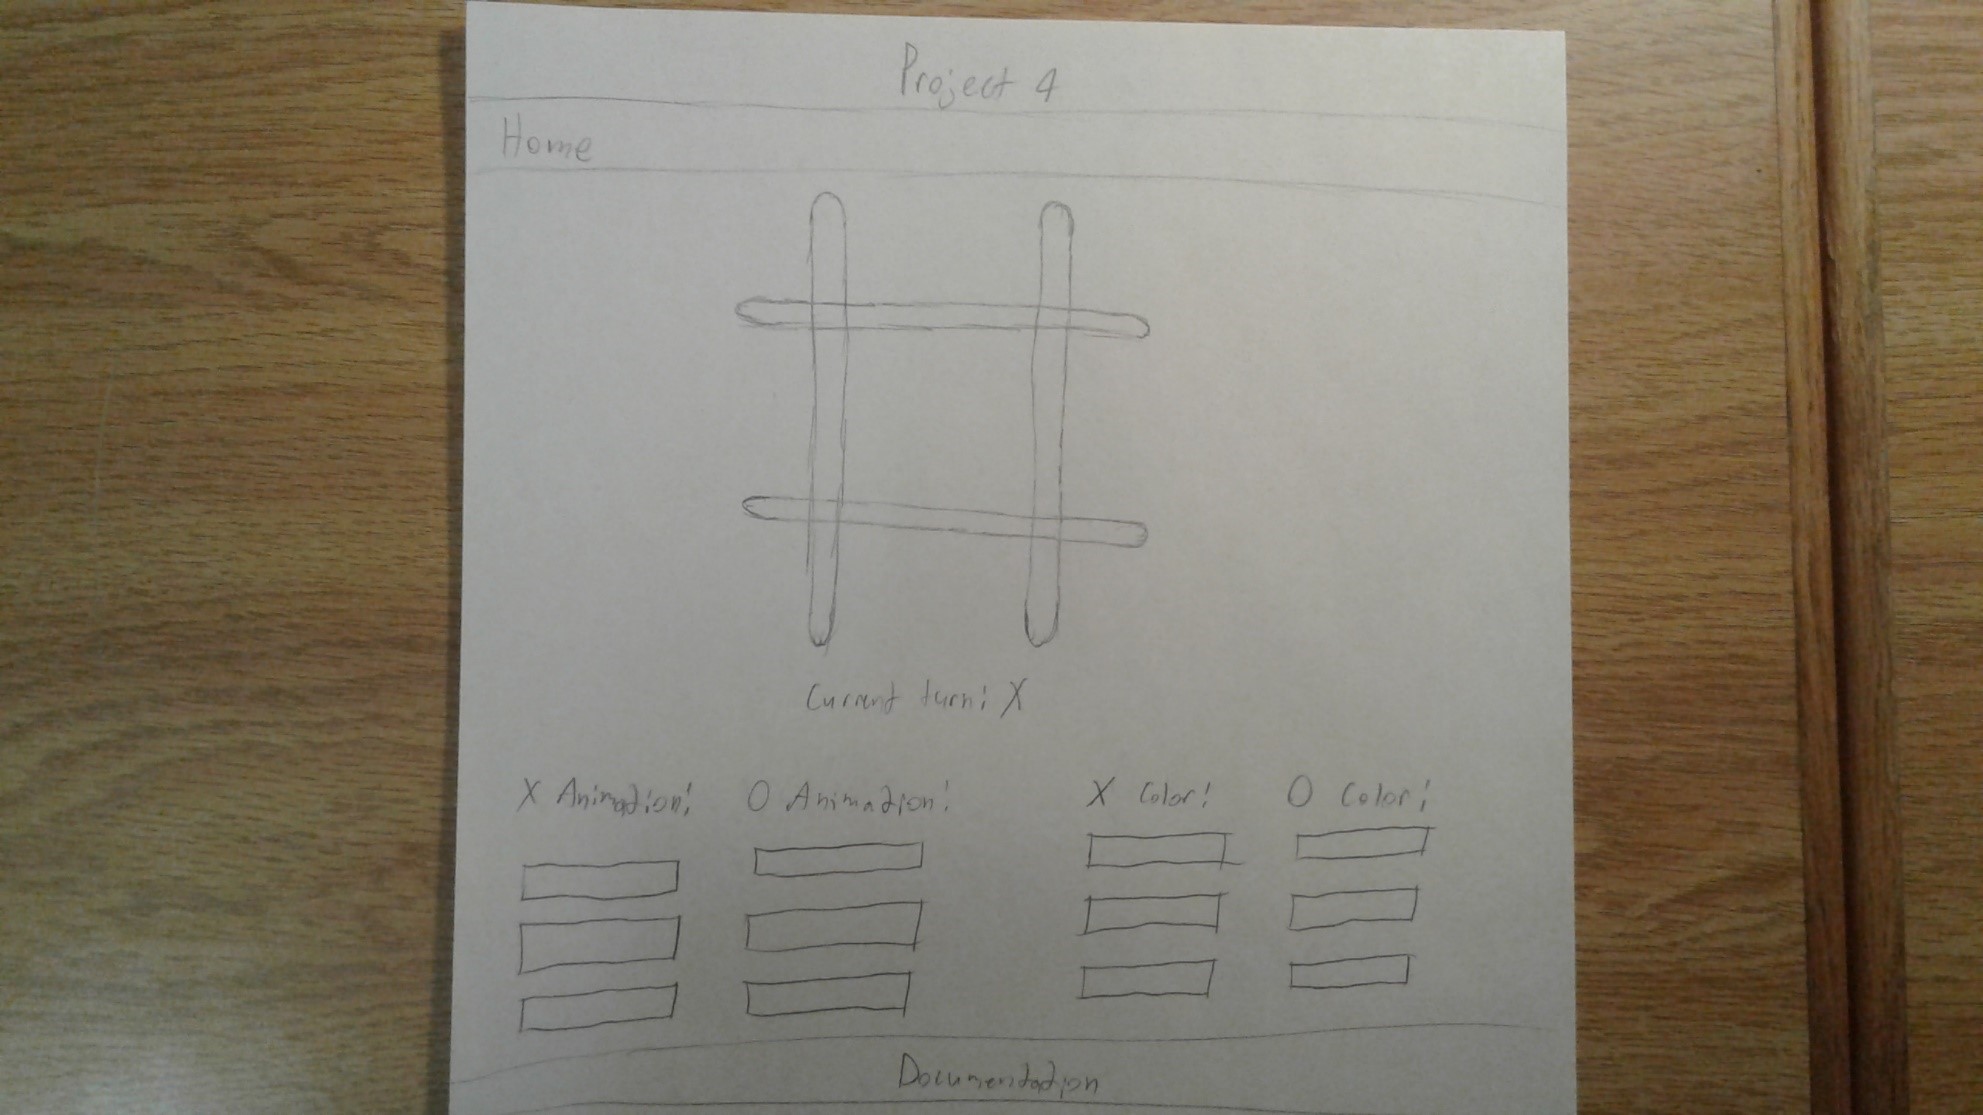 Project 4
Home
Current turn: X
X Animation: O Animation: X Color: O Color:
Documentation